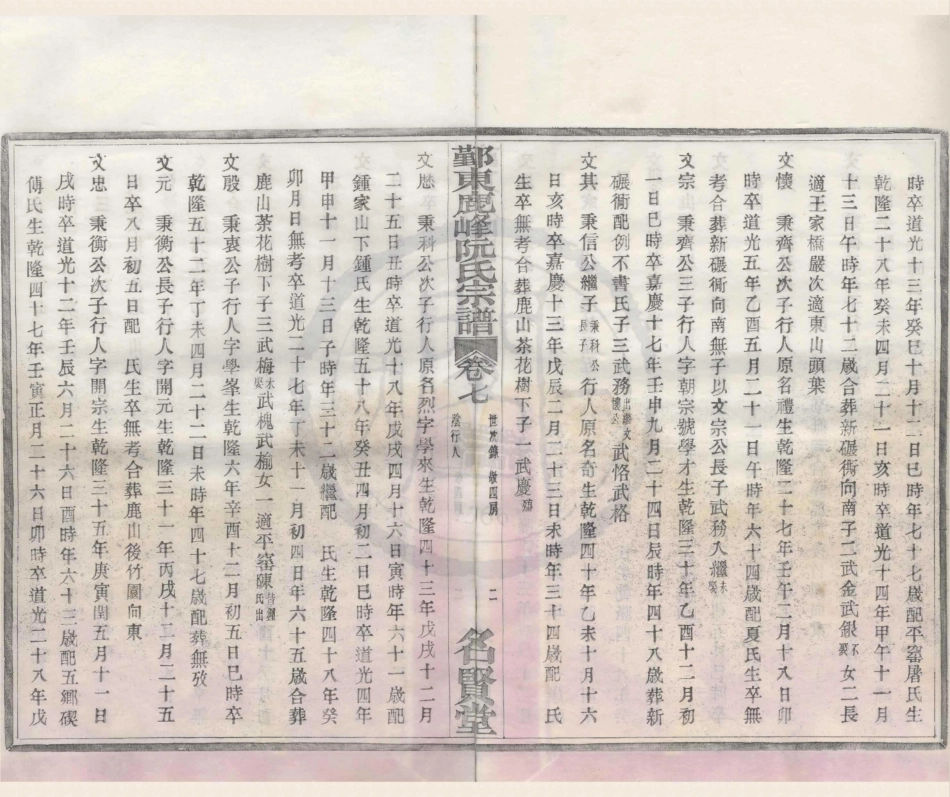 時卒道光十三年癸巳十月十二日巳時年七十七歲配平窰屠氏生
乾隆二十八年癸未四月二十一日亥時卒道光十四年甲午十一月
十三日午時年七十二歲合葬新碾衕向南子二武金武銀不娶女二長
適王家橋嚴次適東山頭葉
文懷 秉齊公次子行人原名禮生乾隆二十七年壬午二月十八日卯
時卒道光五年乙酉五月二十一日午時年六十四歲配夏氏生卒無
考合葬新碾衕向南無子以文宗公長子武務入繼未娶
文宗 秉齊公三子行人字朝宗號學才生乾隆三十年乙酉十二月初
一日巳時卒嘉慶十七年壬申九月二十四日辰時年四十八歲葬新
碾衕配例不書氏子三武務出繼文懷公武恪武格
文其 秉信公繼子秉科公長子行人原名奇生乾隆四十年乙未十月十六
日亥時卒嘉慶十三年戊辰二月二十三日未時年三十四歲配 氏
生卒無考合葬鹿山茶花樹下子一武慶殤
鄞東鹿峰阮氏宗譜 卷七 世次錄 敬四房 陰行人 二 名賢堂
文厯 秉科公次子行人原名烈字學來生乾隆四十三年戊戌十二月
二十五日丑時卒道光十八年戊戌四月十六日寅時年六十一歲配
鍾家山下鍾氏生乾隆五十八年癸丑四月初二日巳時卒道光四年
甲申十一月十三日子時年三十二歲繼配 氏生乾隆四十八年癸
卯月日無考卒道光二十七年丁未十一月初四日年六十五歲合葬
鹿山茶花樹下子三武梅未娶武槐武楡女一適平窰陳皆鍾氏出
文殷 秉衷公子行人字學峯生乾隆六年辛酉十二月初五日巳時卒
乾隆五十二年丁未四月二十二日未時年四十七歲配葬無攷
文元 秉衡公長子行人字開元生乾隆三十一年丙戌十二月二十五
日卒八月初五日配 氏生卒無考合葬鹿山後竹園向東
文忠 秉衡公次子行人字開宗生乾隆三十五年庚寅閏五月十一日
戌時卒道光十二年壬辰六月二十六日酉時年六十三歲配五鄉碶
傅氏生乾隆四十七年壬寅正月二十六日卯時卒道光二十八年戊